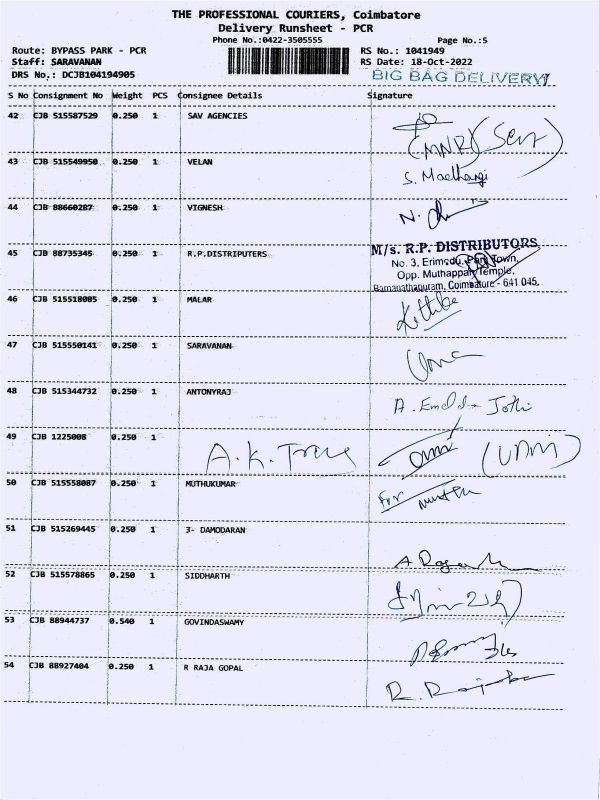 THE PROFESSIONAL COURIERS, Coimbatore
Delivery Runsheet - PCR
Phone No.:0422-3505555 Page No.:5
Route: BYPASS PARK - PCR RS No.: 1041949
Staff: SARAVANAN RS Date: 18-Oct-2022
DRS No.: DCJB104194905 BIG BAG DELIVERY
S No Consignment No Weight PCS Consignee Details Signature
42 CJB 515587529 0.250 1 SAV AGENCIES
(MNR)
43 CJB 515549950 0.250 1 VELAN
44 CJB 88660287 0.250 1 VIGNESH
45 CJB 88735345 0.250 1 R.P.DISTRIPUTERS
M/s. R.P. DISTRIBUTORS
No. 3, Erimedu, Pari Town,
Opp. Muthappan Temple,
Ramanathapuram, Coimbatore - 641 045.
46 CJB 515518085 0.250 1 MALAR
47 CJB 515550141 0.250 1 SARAVANAN
48 CJB 515344732 0.250 1 ANTONYRAJ
49 CJB 1225008 0.250 1 A.K.
50 CJB 515558087 0.250 1 MUTHUKUMAR
For
51 CJB 515269445 0.250 1 3- DAMODARAN
52 CJB 515578865 0.250 1 SIDDHARTH
53 CJB 88944737 0.540 1 GOVINDASWAMY
54 CJB 88927404 0.250 1 R RAJA GOPAL